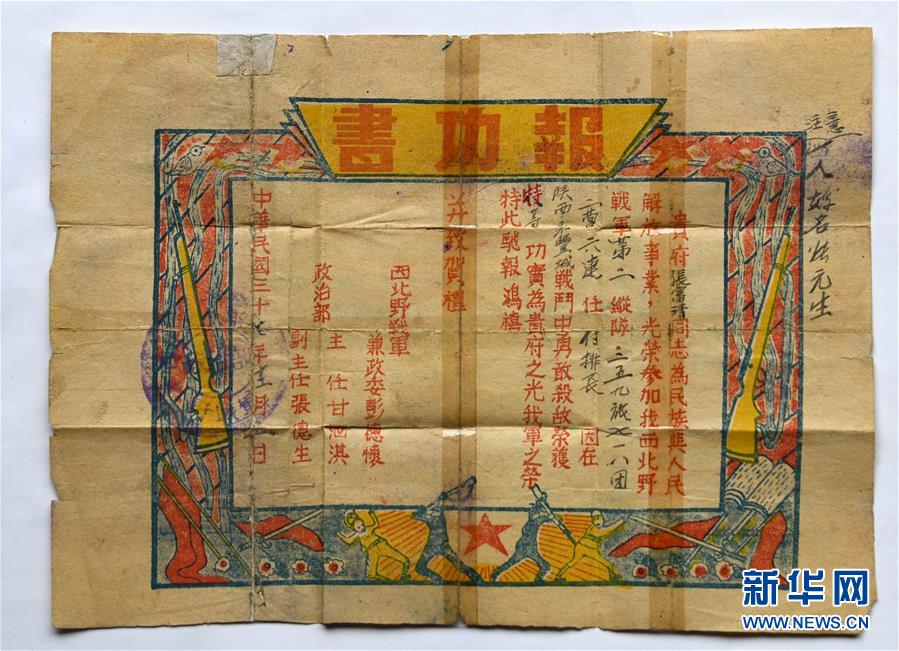 報功書
貴府張富清同志為民族與人民
解放事業，光榮參加我西北野
戰軍第二縱隊三五九旅七一八团
二营六連任付排長因在
陝西永豐城戰鬥中勇敢殺敵榮獲
特等功實為貴府之光我軍之榮
特此馳報鴻禧
并致賀禮
西北野戰軍
兼政委彭德懷
政治部
主任甘泗淇
副主任張德生
中華民國三十七年十二月 日
注意
人姓名 元生
新华网
WWW.NEWS.CN